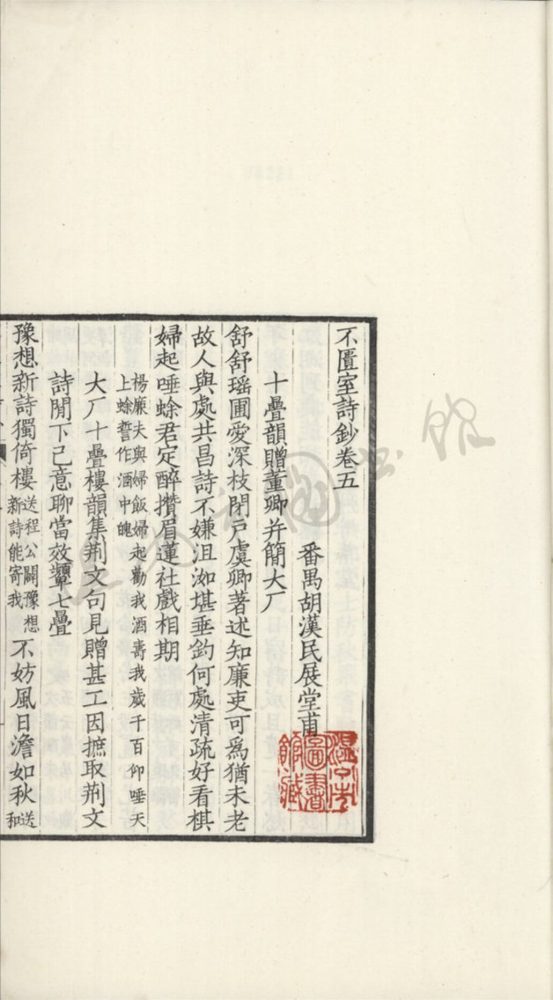 不匱室詩鈔卷五
番禺胡漢民展堂甫
十疊韻贈董卿并簡大厂
舒舒瑶圃愛深枝閉戶虞卿著述知廉吏可爲猶未老
故人與處共昌詩不嫌沮洳堪垂釣何處清疏好看棋
婦起唾蜍君定醉攢眉蓮社戲相期
楊廉夫與婦飯婦起勸我酒壽我歲千百仰唾天
上蜍誓作酒中魄
大厂十疊樓韻集荆文句見贈甚工因摭取荆文
詩閒下己意聊當效顰七疊
豫想新詩獨倚樓
送程公闢豫想
新詩能寄我
不妨風日澹如秋
送
和
圖書
館藏